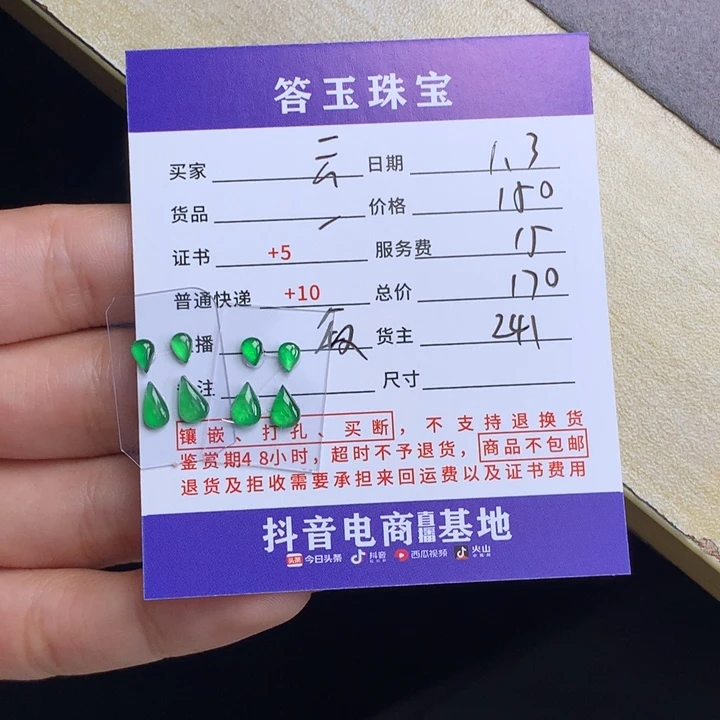 答玉珠宝
买家 云 日期 1.3
货品 价格 150
证书 +5 服务费 15
普通快递 +10 总价 170
播 货主 241
注 尺寸
镶嵌、打孔、买断，不支持退换货
鉴赏期48小时，超时不予退货，商品不包邮
退货及拒收需要承担来回运费以及证书费用
抖音电商直播基地
头条 今日头条 抖音 西瓜视频 火山